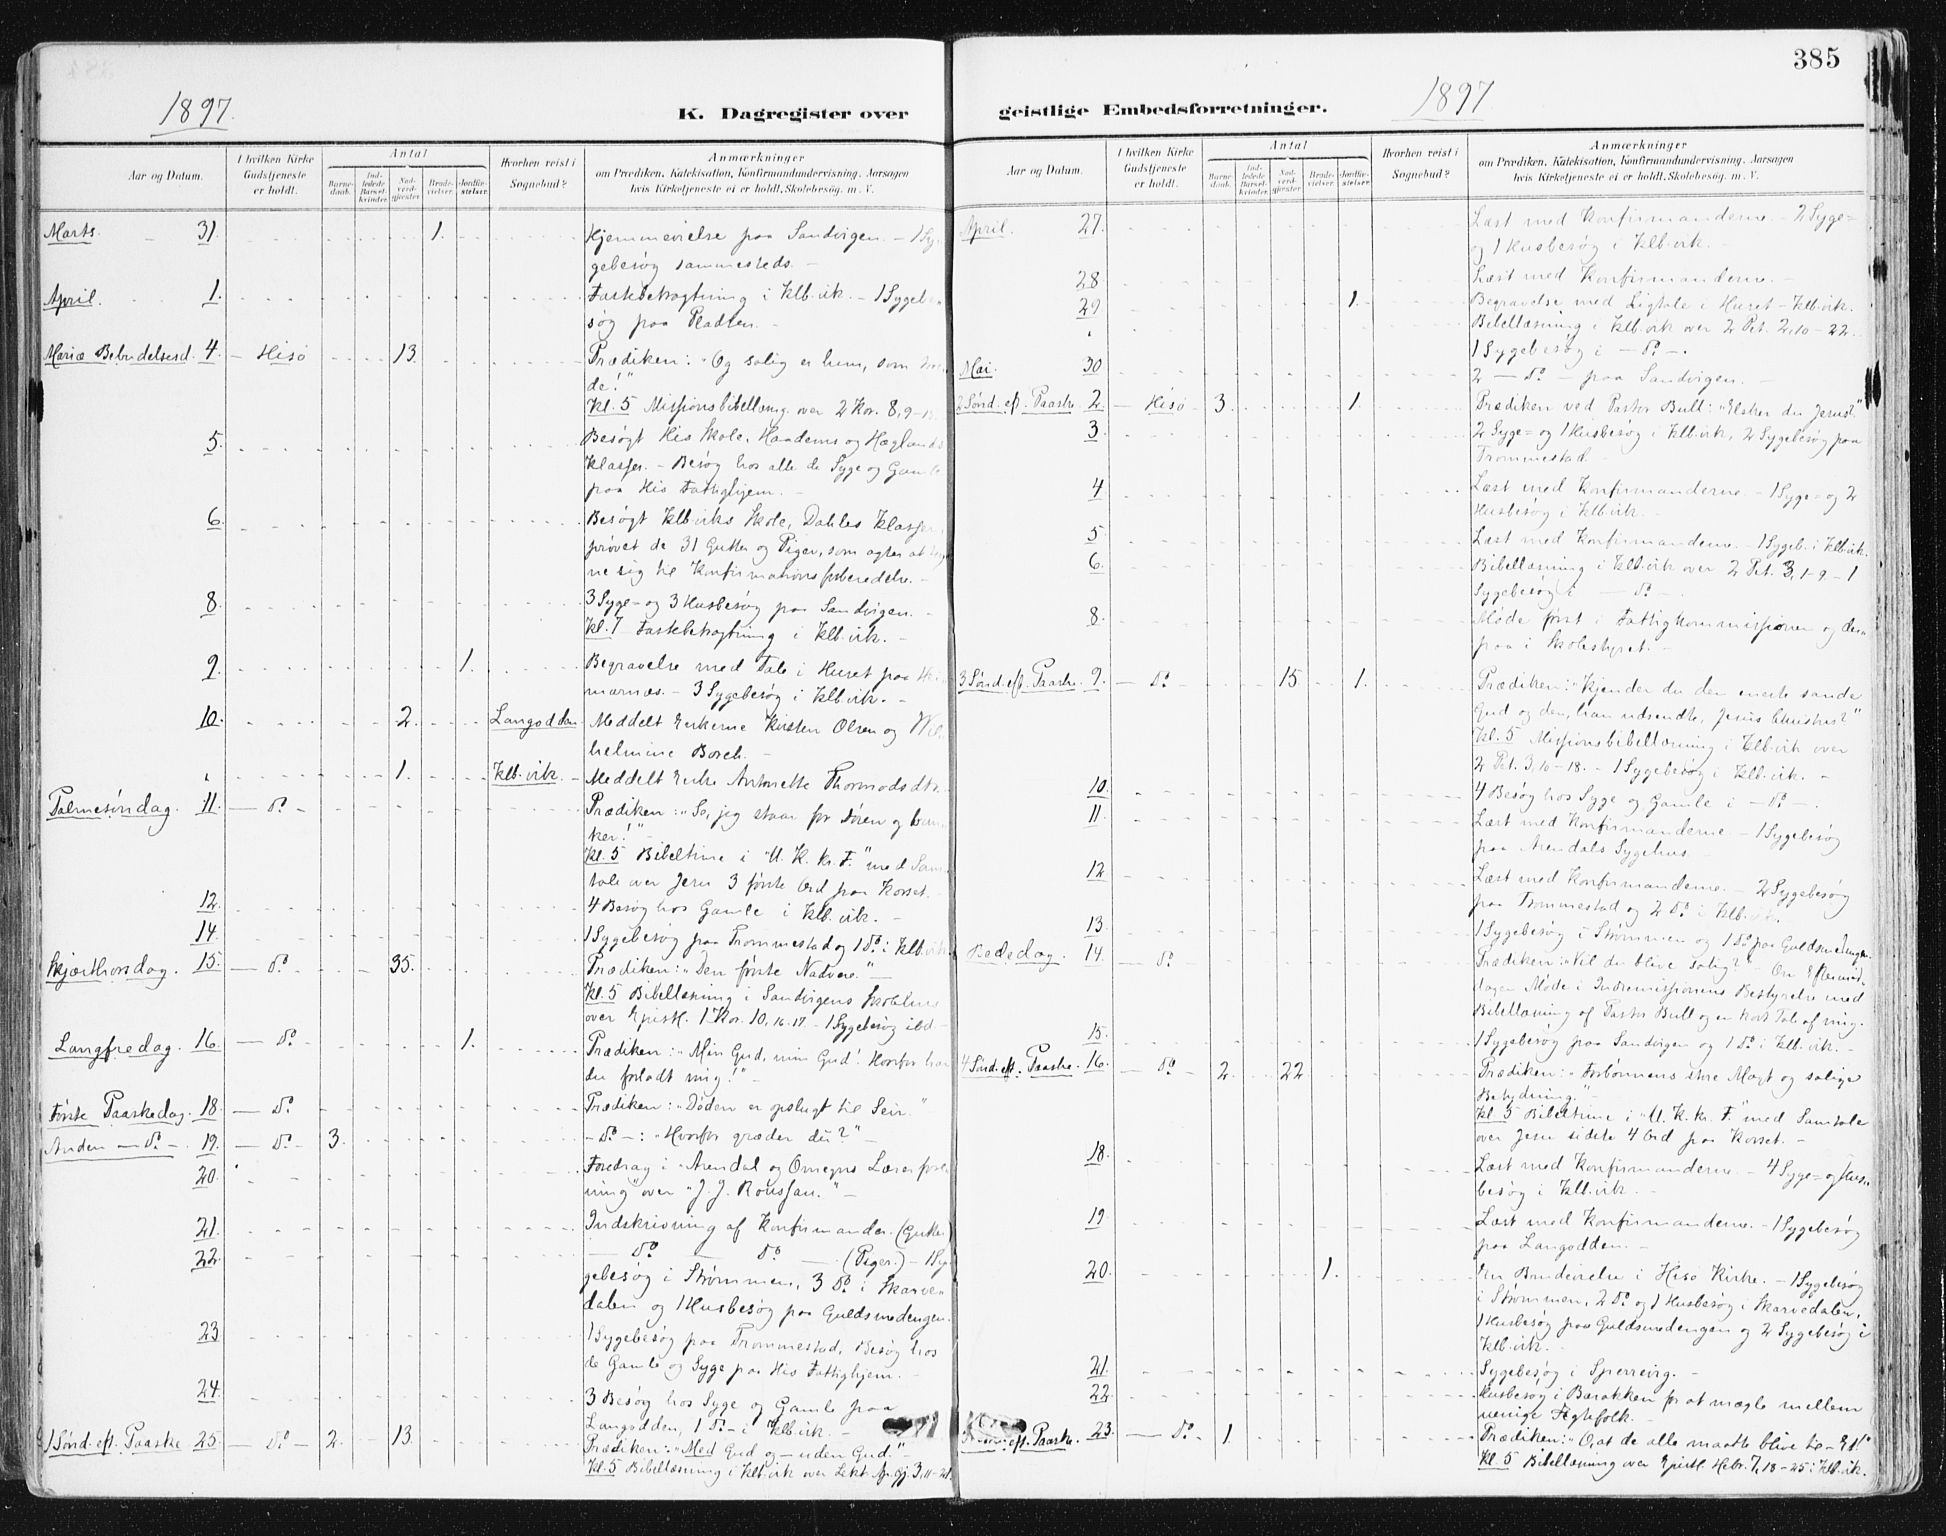 385
1897.
K. Dagregister over
geistlige Embedsforretninger.
1897
Aar og Datum.
I hvilken Kirke Gudstjeneste er holdt.
Antal
Barnedaab.
Indledede Barselkvinder.
Nadverdgjester.
Brudevielser.
Jordfæstelser.
Hvorhen reist i Sognebud?
Anmærkninger
om Prædiken, Katekisation, Konfirmandundervisning, Aarsagen
hvis Kirketjeneste ei er holdt, Skolebesøg, m. V.
Marts. 31. 1. Hjemmevielse paa Sandvigen. - 1 Sy-
gebesøg sammesteds. -
April. 1. Fastebetragtning i Klb.vik. - 1 Sygebe-
søg paa Pladsen. -
Mariæ Bebudelsesd. 4. - Hisø 13. Prædiken: "Og salig er hun, som
de!"
Kl. 5 Missionsbibellæsng. over 2 Kor. 8, 9-
5. Besøgt His Skole, Haadems og Hæglands
Klasser. - Besøg hos alle de Syge og Gamle
paa His Fattighjem. -
6. Besøgt Klb.viks Skole, Dahles Klasser,
prøvet de 31 Gutter og Piger, som agter at
ne sig til Konfirmationsforberedelse. -
8. 3 Syge- og 3 Husbesøg paa Sandvigen. -
Kl. 7 Fastebetragtning i Klb.vik. -
9. 1. Begravelse med Tale i Huset paa
marnæs. - 3 Sygebesøg i Klb.vik. -
10. 2. Langodden Meddelt Enkerne Kirsten Olsen og Wil-
helmine Borch. -
" 1. Klb.vik. Meddelt Enke Antonette Thormodsdtr.
Palmesøndag. 11. - do. Prædiken: "Se, jeg staar for Døren og ban-
ker!" -
Kl. 5 Bibeltime i "U. K. kr. F." med Sam-
tale over Jesu 3 første Ord paa Korset. -
12. 4 Besøg hos Gamle i Klb.vik. -
14. 1 Sygebesøg paa Trommestad og 1 do. i Klb.vik.
Skjærthorsdag. 15. - do. 35. Prædiken: "Den første Nadvere." -
Kl. 5 Bibellæsning i Sandvigens Skolehus
over Epistl. 1 Kor. 10, 16-17 - 1 Sygebesøg ibd -
Langfredag. 16. - do. 1. Prædiken: "Min Gud, min Gud! Hvorfor har
du forladt mig!" -
Første Paaskedag. 18. - do. Prædiken: "Døden er opslugt til Seir."
Anden - do. - 19. - do. 3. - do. -: "Hvorfor græder du?" -
20. Foredrag i "Arendal og Omegns Lærerfore-
ning" over "J. J. Roussau." -
21. Indskrivning af Konfirmander. (Gutter)
22. - do. - do. - (Piger.) - 1 Sy-
gebesøg i Strømmen, 3 do. i Skarve-
dalen og 1 Husbesøg paa Guldsmedengen.
23. 1 Sygebesøg paa Trommestad, Besøg hos
de Gamle og Syge paa His Fattighjem. -
24. 3 Besøg hos Syge og Gamle paa
Langodden, 1 do. - i Klb.vik. -
1 Sønd. eft. Paaske 25. - do. - 2. 13. Prædiken: "Med Gud og - uden Gud."
Kl. 5 Bibellæsning i Klb.vik over Lekt. Ap. gj. 3, 11-21.
April. 27. Læst med Konfirmanderne. - 2 Syge-
og 1 Husbesøg i Klb.vik. -
28. Læst med Konfirmanderne. -
29. 1. Begravelse med Ligtale i Huset - Klb.vik.
" Bibellæsning i Klb.vik over 2 Pet. 2, 10-22.
1 Sygebesøg i - do. -.
Mai. 30 2 - do. - paa Sandvigen. -
2 Sønd. eft. Paaske. 2. - Hisø 3. 1. Prædiken ved Pastor Bull: "Elsker du Jesus?"
3. 2 Syge- og 1 Husbesøg i Klb.vik, 2 Sygebesøg paa
Trommestad. -
4. Læst med Konfirmanderne. - 1 Syge- og 2
Husbesøg i Klb.vik. -
5. Læst med Konfirmanderne. - 1 Sygeb. i Klb.vik.
6. Bibellæsning i Klb.vik over 2 Pet. 3, 1-9 - 1
Sygebesøg i - do. -.
8. Møde først i Fattigkommissionen og der-
paa i Skolestyret. -
3 Sønd. eft. Paaske. 9. - do. 15 1. Prædiken: "Kjender du den eneste sande
Gud og den, han udsendte, Jesus Christus?"
Kl. 5 Missionsbibellæsning i Klb.vik over
2 Pet. 3, 10-18. - 1 Sygebesøg i Klb.vik. -
10. 4 Besøg hos Syge og Gamle i - do. -.
11. Læst med Konfirmanderne - 1 Sygebesøg
paa Arendals Sygehus. -
12 Læst med Konfirmanderne. - 2 Sygebesøg
paa Trommestad og 2 do. i Klb.vik.
13. 1 Sygebesøg i Strømmen og 1 do. paa Guldsmedengen.
Bededag. 14. - do. Prædiken: "Vil du blive salig?" - Om Eftermid-
dagen Møde i Indremissionens Bestyrelse med
Bibellæsning af Pastor Bull og en kort Tale af mig.
15. 1 Sygebesøg paa Sandvigen og 1 do. i Klb.vik. -
4 Sønd. eft. Paaske. 16. - do. 2. 22. Prædiken: "Forbønnens store Magt og salige
Betydning." -
Kl. 5 Bibeltime i "U. K. kr. F." med Samtale
over Jesu sidste 4 Ord paa Korset. -
18. Læst med Konfirmanderne. - 4 Syge- og Hus-
besøg i Klb.vik. -
19 Læst med Konfirmanderne. - 1 Sygebesøg
paa Langodden. -
20. 1. En Brudevielse i Hisø Kirke. - 1 Sygebesøg
i Strømmen, 2 do. og 1 Husbesøg i Skarvedalen,
1 Husbesøg paa Guldsmedengen og 2 Sygebesøg i
Klb.vik. -
21. Sygebesøg i Sperrevig. -
22. Husbesøg i Barakken for at mægle mellem
uenige Ægtefolk. -
eft. Paaske. 23. - do. 1. Prædiken: "O, at de alle maatte blive til - Et!"
Kl. 5 Bibellæsning over Epistl. Hebr. 7, 18-25 i Klb.vik.